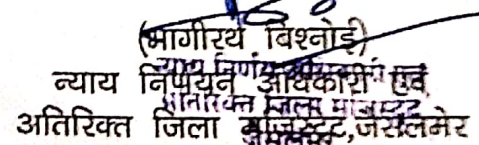 (भागीरथ बिश्नोई)
न्याय निर्णयन अधिकारी एवं
अतिरिक्त जिला मजिस्ट्रेट,जैसलमेर